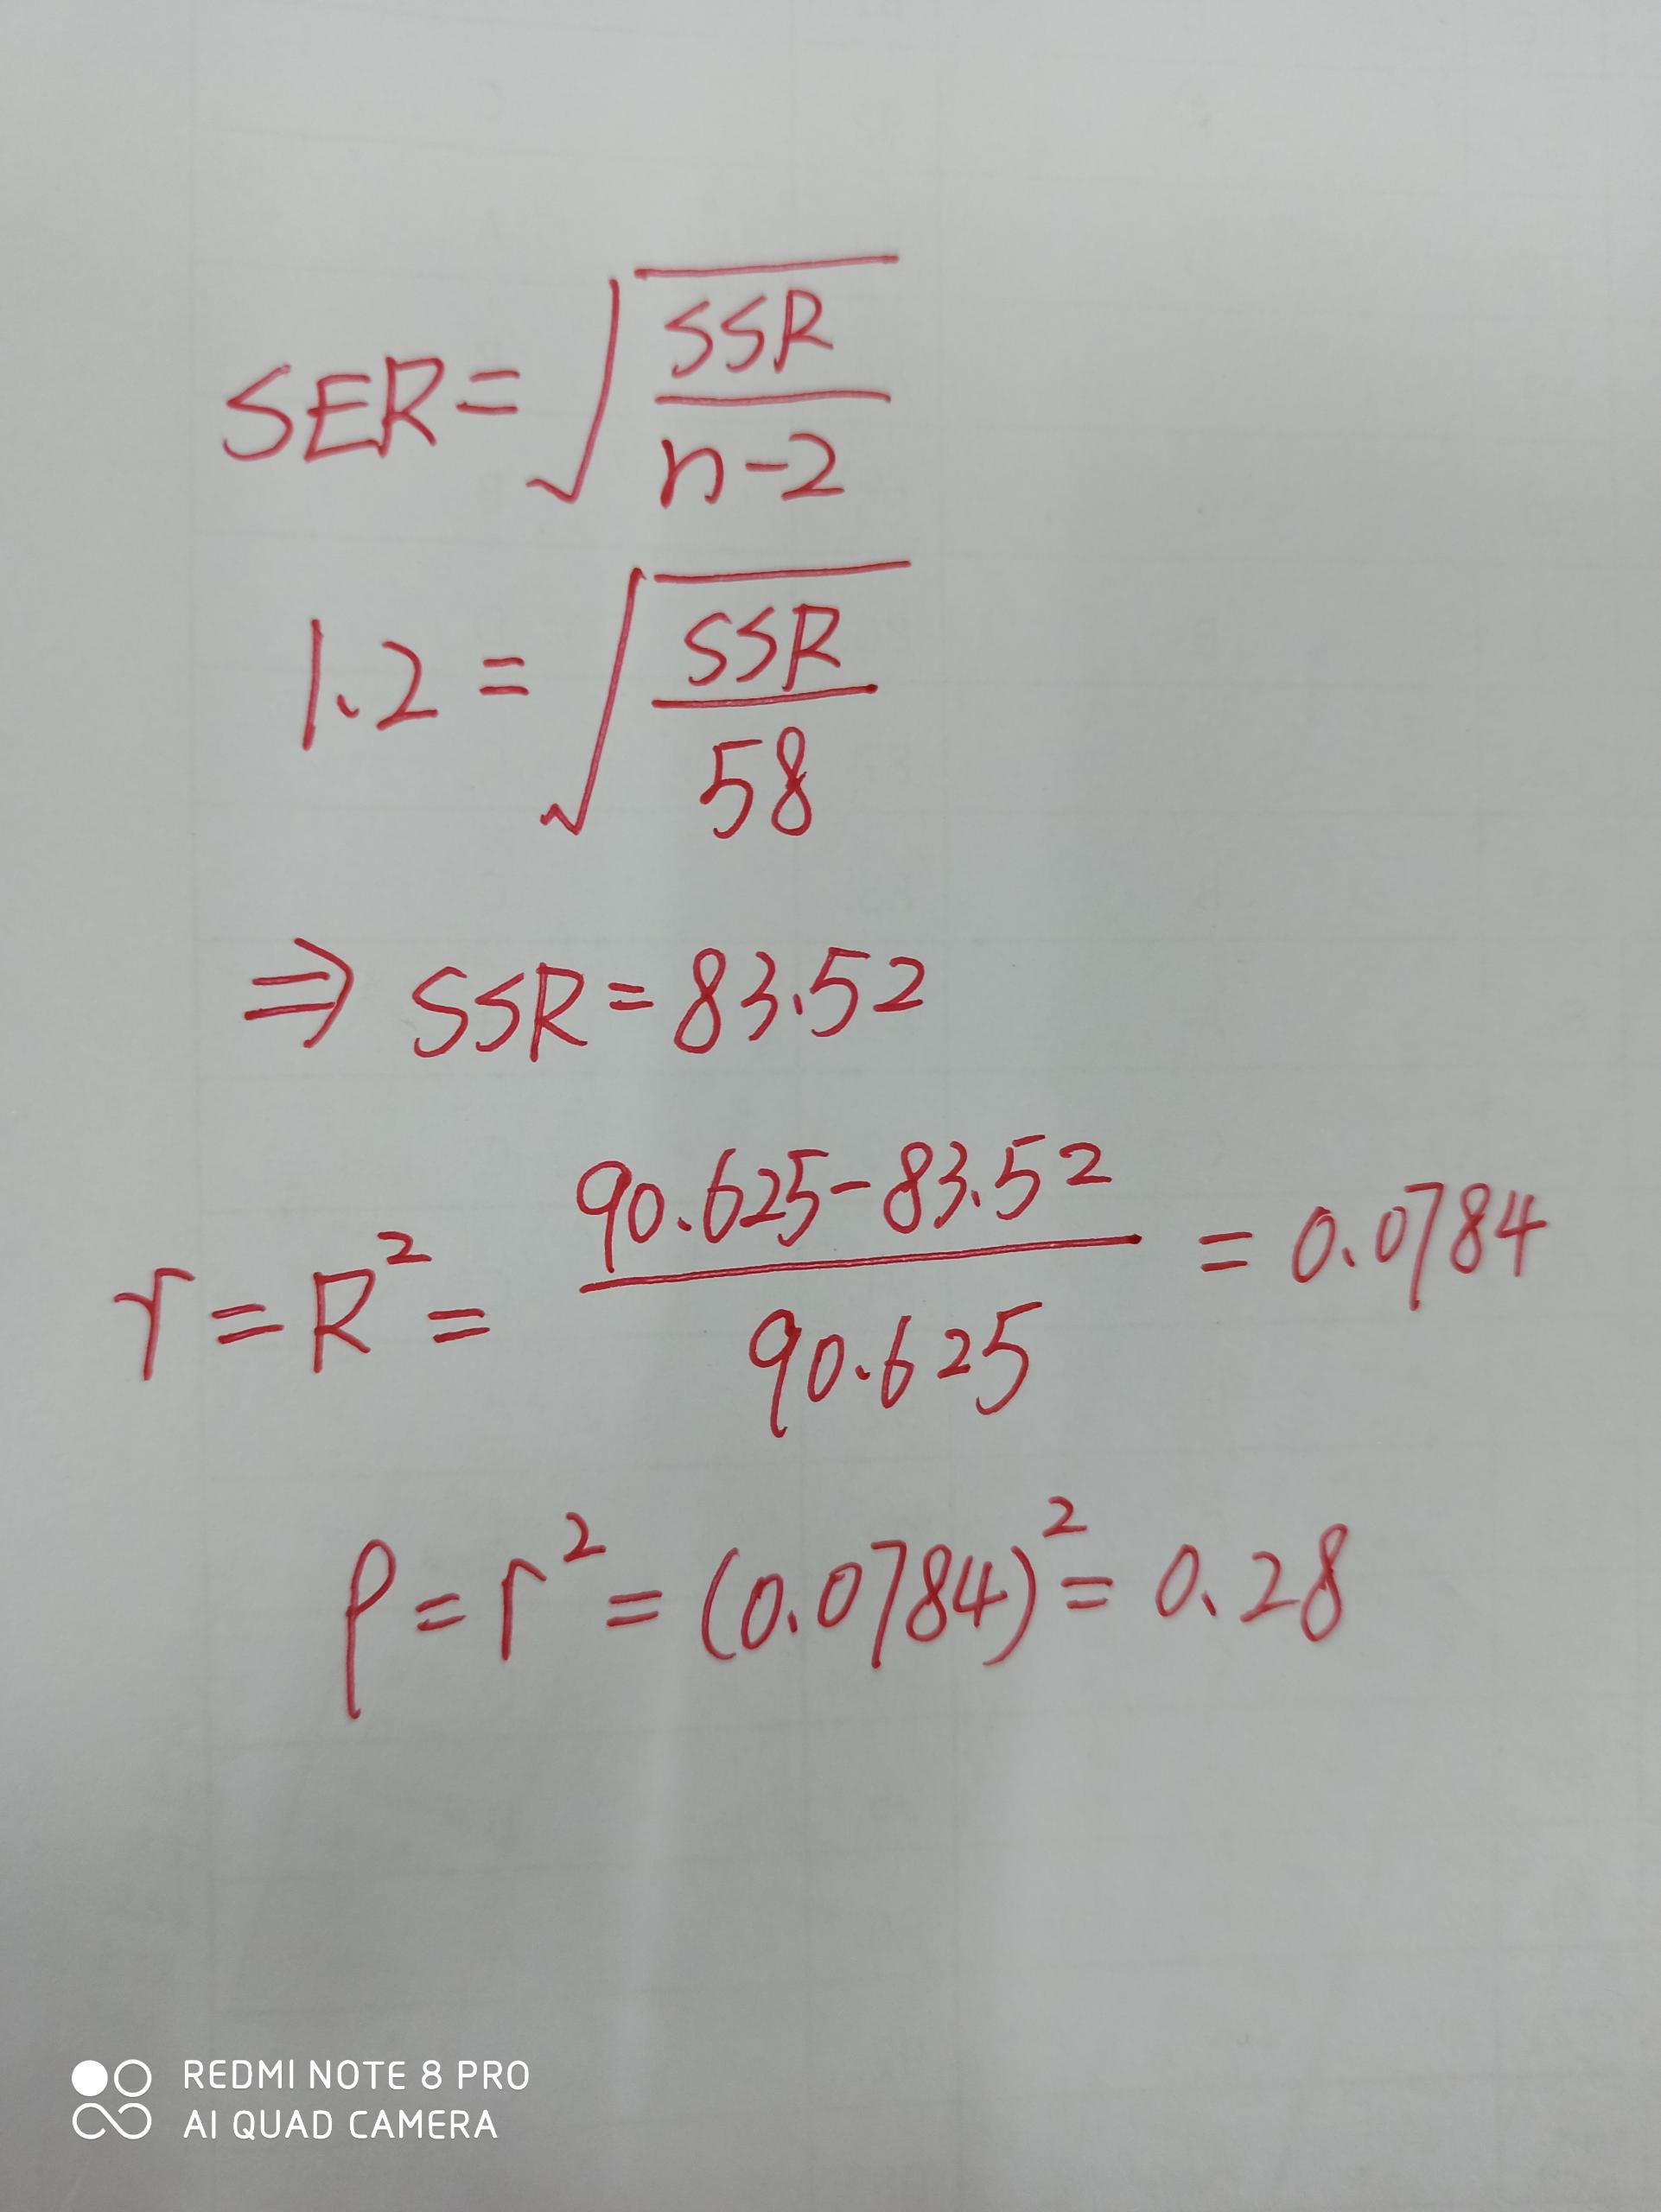 SER = √(SSR / n-2)
1.2 = √(SSR / 58)
⇒ SSR = 83.52
r = R² = (90.625 - 83.52) / 90.625 = 0.0784
ρ = r² = (0.0784)² = 0.28
REDMI NOTE 8 PRO
AI QUAD CAMERA